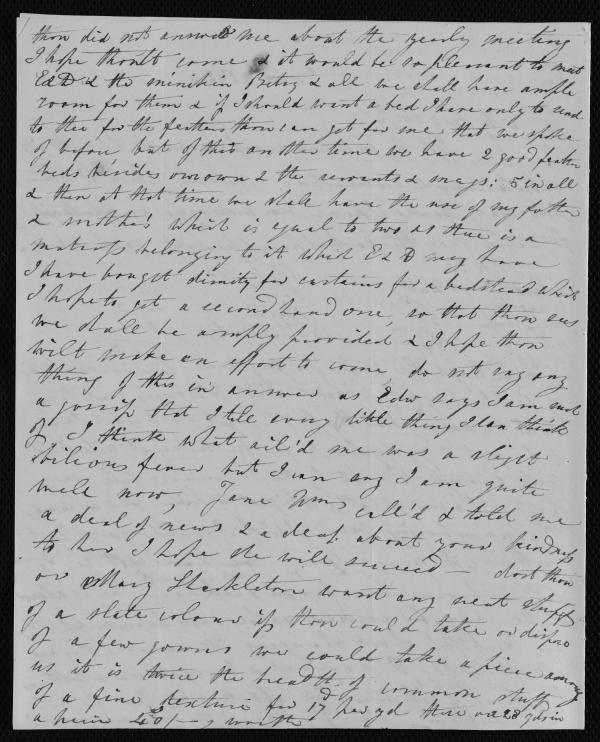 thou did not answer me about the yearly meeting
I hope thou'lt come & it would be so pleasant to meet
E&D & the minikin Betsy & all we shall have ample
room for them & if I should want a bed I have only to send
to thee for the feathers thou can get for me that we spoke
of before but of that another time we have 2 good feather
beds besides our own & the servants & : 5 in all
& then at that time we shall have the use of my father
& mother's which is equal to two as there is a
matrass belonging to it which E&D may have
I have bought dimity for curtains for a bedstead which
I hope to get a second hand one, so that thou sees
we shall be amply provided & I hope thou
wilt make an effort to come, do not say any
thing of this in answer as Edw says I am such
a gossip that I tell every little thing I can think
of, I think what ail'd me was a slight
bilious fever but I can say I am quite
well now, Jane call'd & told me
a deal of news & a deal about your kindness
to her I hope she will succeed — dost thou
or Mary Shackleton want any neat stuff
of a slate colour if thou could take or dispo
of a few gowns we could take a piece among
us it is twice the breadth of common stuff
of a fine texture for 17d per yd there are 28 yds in
a piece worth